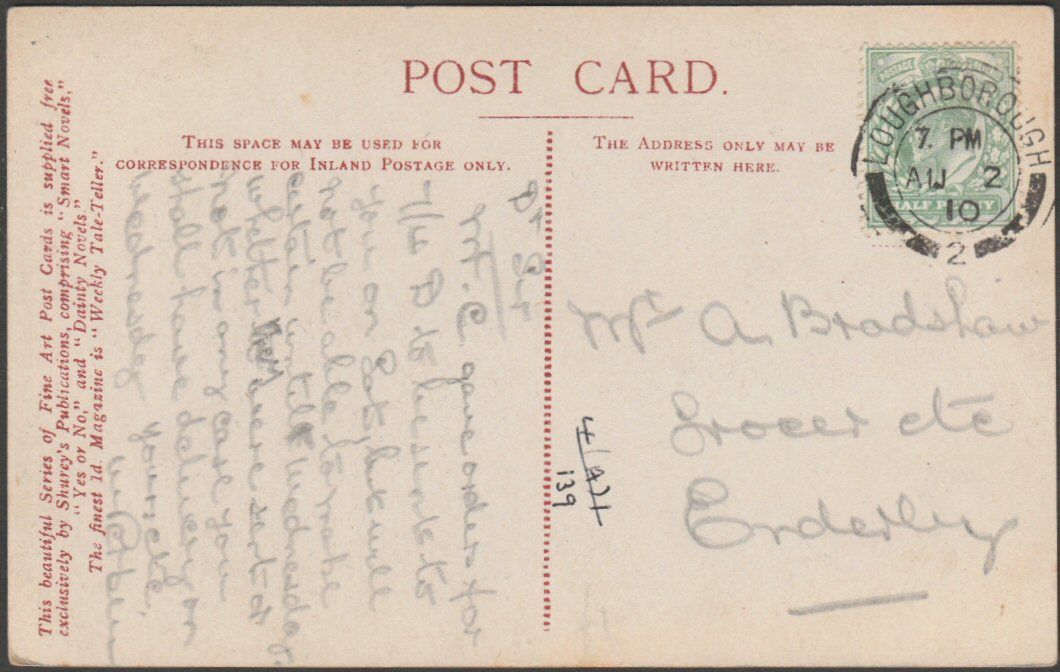 POST CARD.
THIS SPACE MAY BE USED FOR
CORRESPONDENCE FOR INLAND POSTAGE ONLY.
THE ADDRESS ONLY MAY BE
WRITTEN HERE.
This beautiful Series of Fine Art Post Cards is supplied free
exclusively by Shurey's Publications, comprising "Smart Novels,"
"Yes or No," and "Dainty Novels."
The finest 1d. Magazine is "Weekly Tale-Teller."
LOUGHBOROUGH
7. PM
AU 2
10
2
POSTAGE
HALF PENNY
Dr Sir
Mr. C. gave orders for
to be sent to
you on Sat, but will
not be able to make
certain until Wednesday
whether were sent or
not in any case you
shall have delivery on
Wednesday
Yours etc,
Mr A. Bradshaw
Grocer etc
Enderby
139